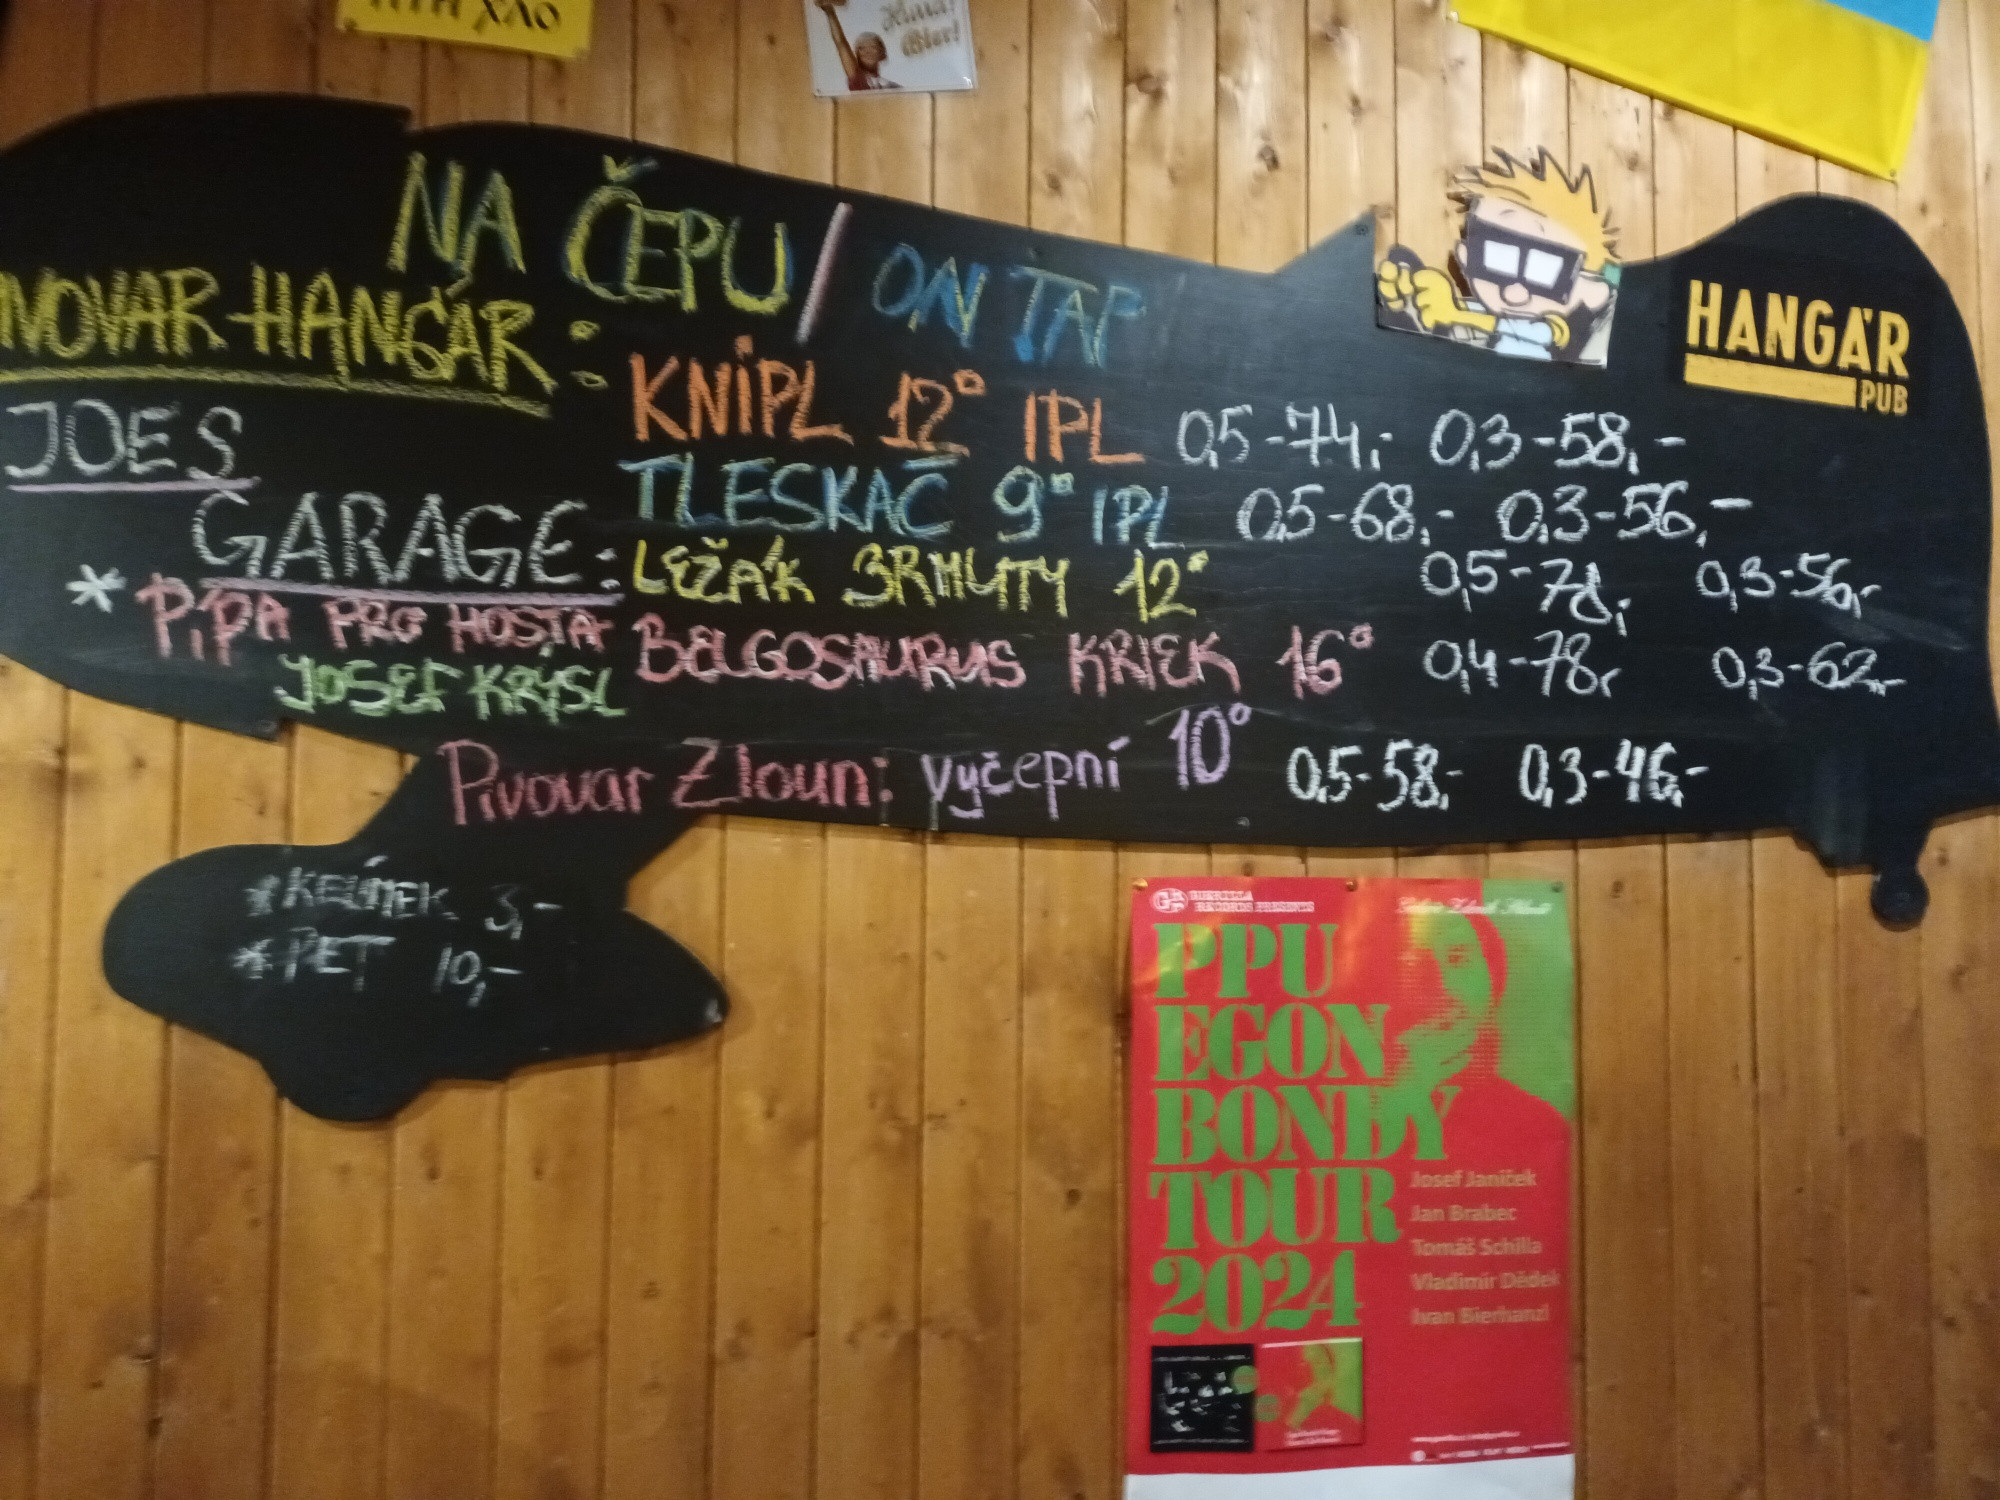 Hurá!
Bier!
NA ČEPU / ON TAP
HANGÁR
PUB
IVOVAR HANGÁR:
KNIPL 12° IPL 0,5-74,- 0,3-58,-
JOES
TLESKAČ 9° IPL 0,5-68,- 0,3-56,-
GARAGE:
LEŽÁK 3RMUTY 12° 0,5-78,- 0,3-56,-
* PÍPA PRO HOSTA
BELGOSAURUS KRIEK 16° 0,4-78,- 0,3-62,-
JOSEF KRÝSL
Pivovar Zloun: Vyčepní 10° 0,5-58,- 0,3-46,-
*KELÍMEK 3,-
*PET 10,-
GUERILLA
RECORDS PRESENTS
PPU
EGON
BONDY
TOUR
2024
Josef Janíček
Jan Brabec
Tomáš Schilla
Vladimír Dědek
Ivan Bierhanzl